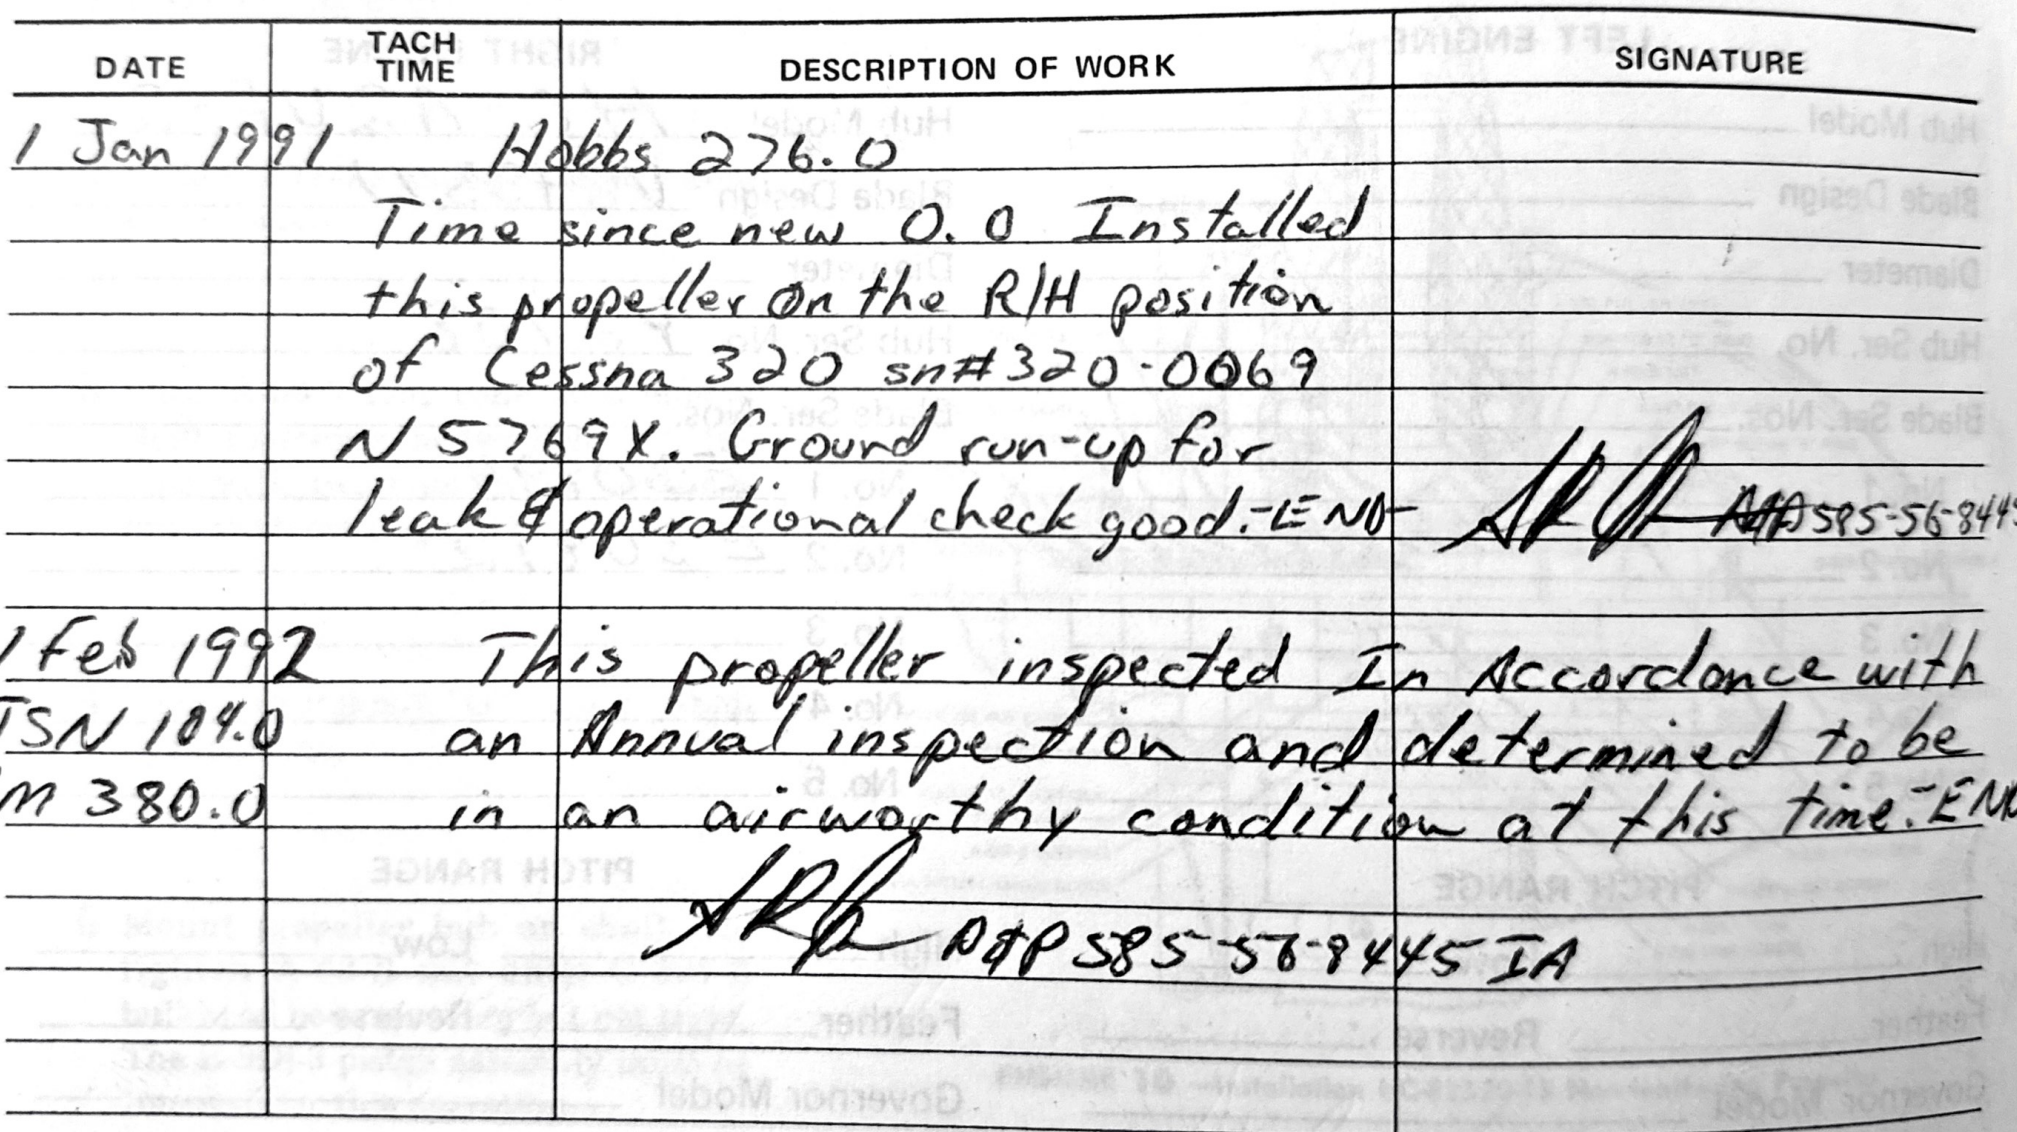 DATE TACH TIME DESCRIPTION OF WORK SIGNATURE
1 Jan 1991 Hobbs 276.0
Time since new 0.0 Installed
this propeller on the R/H position
of Cessna 320 sn#320-0069
N5769X. Ground run-up for
leak & operational check good.-END- A&P 585-56-844
1 Feb 1992 This propeller inspected In Accordance with
TSN 104.0 an Annual inspection and determined to be
M 380.0 in an airworthy condition at this time.-END
A&P 585-56-8445 IA